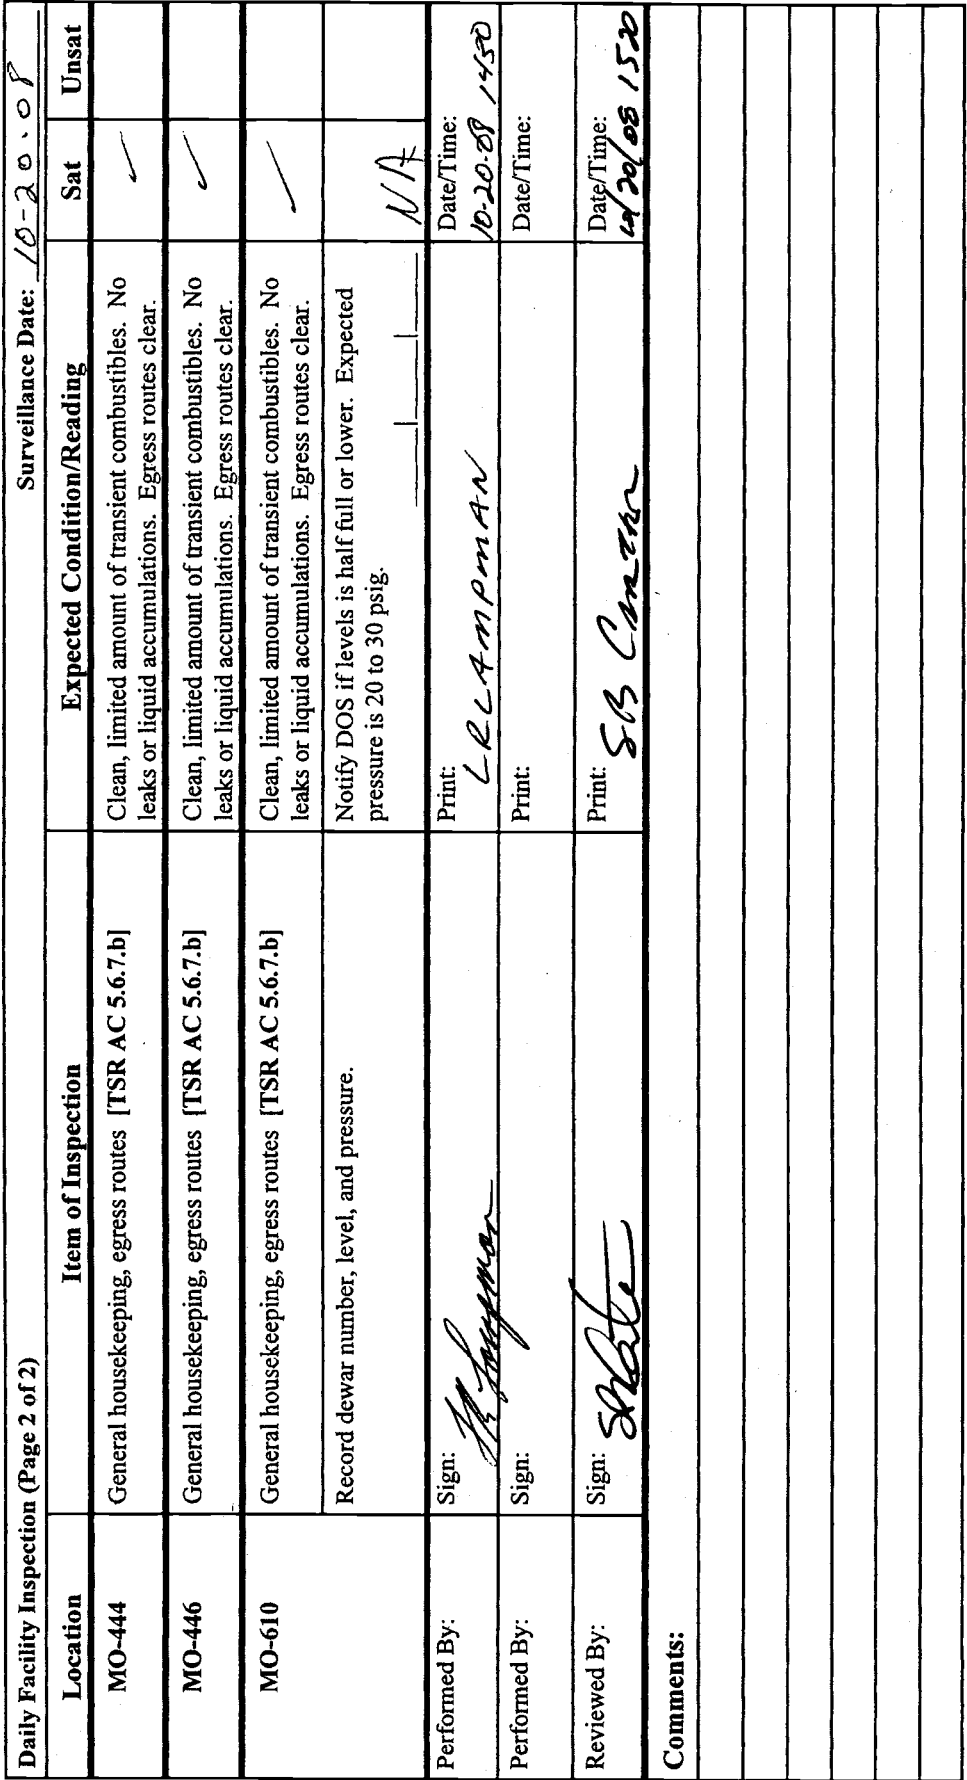 Daily Facility Inspection (Page 2 of 2) Surveillance Date: 10-20-08
Location Item of Inspection Expected Condition/Reading Sat Unsat
MO-444 General housekeeping, egress routes [TSR AC 5.6.7.b] Clean, limited amount of transient combustibles. No ✓
leaks or liquid accumulations. Egress routes clear.
MO-446 General housekeeping, egress routes [TSR AC 5.6.7.b] Clean, limited amount of transient combustibles. No ✓
leaks or liquid accumulations. Egress routes clear.
MO-610 General housekeeping, egress routes [TSR AC 5.6.7.b] Clean, limited amount of transient combustibles. No ✓
leaks or liquid accumulations. Egress routes clear.
Record dewar number, level, and pressure. Notify DOS if levels is half full or lower. Expected
pressure is 20 to 30 psig. NA
Performed By: Sign: Print: LR LAMPMAN Date/Time:
10-20-08 1450
Performed By: Sign: Print: Date/Time:
Reviewed By: Sign: Print: SB Date/Time:
10/20/08 1520
Comments: